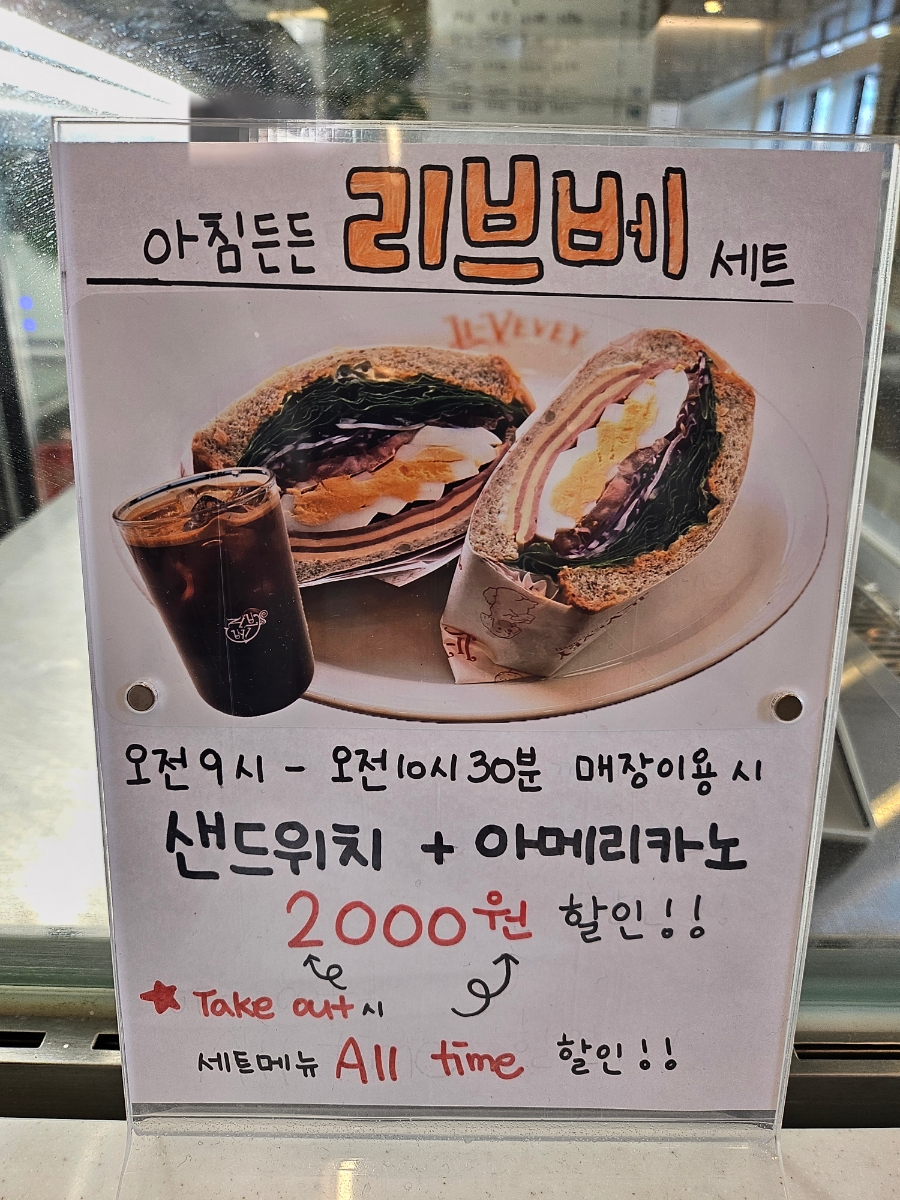 아침든든 리브베 세트
LI-VEVEY
리브베
오전 9시 - 오전 10시 30분 매장이용 시
샌드위치 + 아메리카노
2000원 할인!!
★ Take out 시
세트메뉴 All time 할인!!